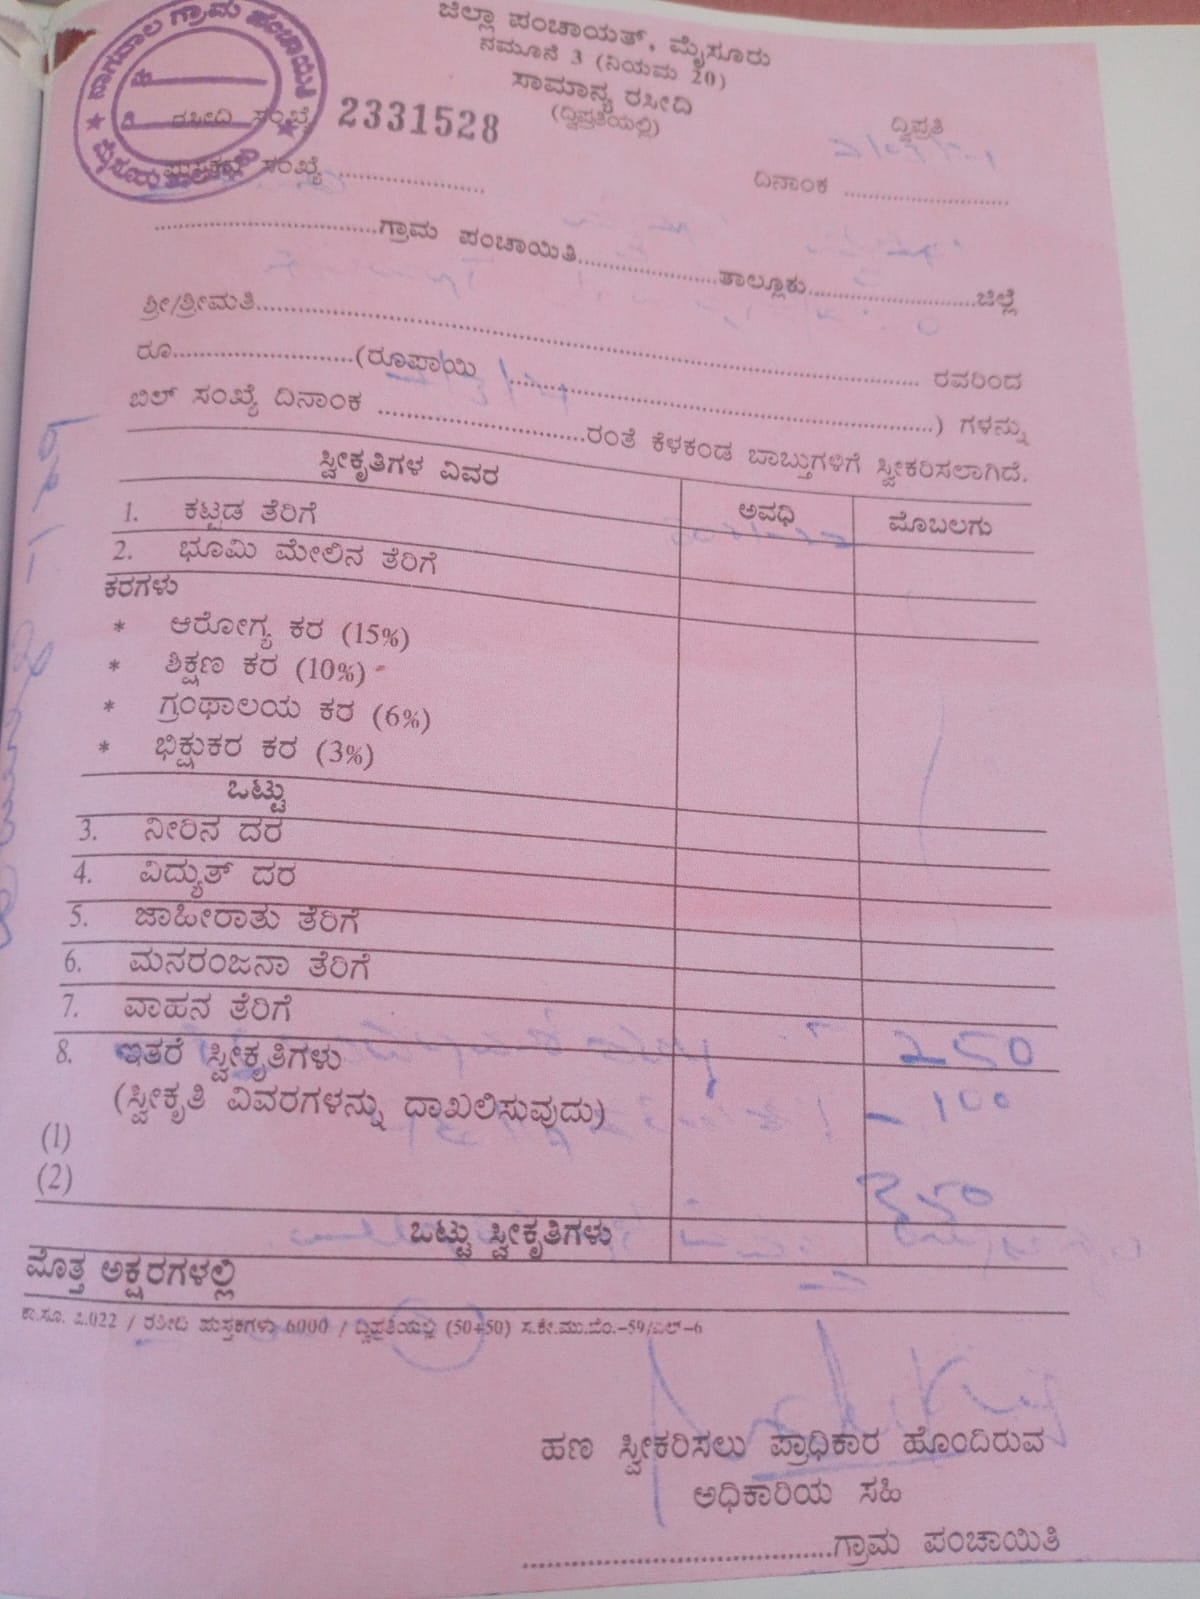 ನಾಗವಾಲ ಗ್ರಾಮ ಪಂಚಾಯಿತಿ
ಮೈಸೂರು
ಜಿಲ್ಲಾ ಪಂಚಾಯತ್, ಮೈಸೂರು
ನಮೂನೆ 3 (ನಿಯಮ 20)
ಸಾಮಾನ್ಯ ರಸೀದಿ
(ದ್ವಿಪ್ರತಿಯಲ್ಲಿ)
ದ್ವಿಪ್ರತಿ
ರಸೀದಿ ಸಂಖ್ಯೆ 2331528
ಪುಸ್ತಕದ ಸಂಖ್ಯೆ .................... ದಿನಾಂಕ ....................
....................ಗ್ರಾಮ ಪಂಚಾಯಿತಿ....................ತಾಲ್ಲೂಕು....................ಜಿಲ್ಲೆ
ಶ್ರೀ/ಶ್ರೀಮತಿ.................... ರವರಿಂದ
ರೂ....................(ರೂಪಾಯಿ ....................) ಗಳನ್ನು
ಬಿಲ್ ಸಂಖ್ಯೆ ದಿನಾಂಕ ....................ರಂತೆ ಕೆಳಕಂಡ ಬಾಬ್ತುಗಳಿಗೆ ಸ್ವೀಕರಿಸಲಾಗಿದೆ.
ಸ್ವೀಕೃತಿಗಳ ವಿವರ ಅವಧಿ ಮೊಬಲಗು
1. ಕಟ್ಟಡ ತೆರಿಗೆ
2. ಭೂಮಿ ಮೇಲಿನ ತೆರಿಗೆ
ಕರಗಳು
* ಆರೋಗ್ಯ ಕರ (15%)
* ಶಿಕ್ಷಣ ಕರ (10%)
* ಗ್ರಂಥಾಲಯ ಕರ (6%)
* ಭಿಕ್ಷುಕರ ಕರ (3%)
ಒಟ್ಟು
3. ನೀರಿನ ದರ
4. ವಿದ್ಯುತ್ ದರ
5. ಜಾಹೀರಾತು ತೆರಿಗೆ
6. ಮನರಂಜನಾ ತೆರಿಗೆ
7. ವಾಹನ ತೆರಿಗೆ
8. ಇತರೆ ಸ್ವೀಕೃತಿಗಳು 250
(ಸ್ವೀಕೃತಿ ವಿವರಗಳನ್ನು ದಾಖಲಿಸುವುದು) - 100
(1)
(2) 350
ಒಟ್ಟು ಸ್ವೀಕೃತಿಗಳು
ಮೊತ್ತ ಅಕ್ಷರಗಳಲ್ಲಿ
ಕಾ.ಸೂ. ಪಿ.022 / ರಶೀದಿ ಪುಸ್ತಕಗಳು 6000 / ದ್ವಿಪ್ರತಿಯಲ್ಲಿ (50+50) ಸ.ಕೇ.ಮು.ಬೆಂ.-59/ಎಲ್-6
ಹಣ ಸ್ವೀಕರಿಸಲು ಪ್ರಾಧಿಕಾರ ಹೊಂದಿರುವ
ಅಧಿಕಾರಿಯ ಸಹಿ
....................ಗ್ರಾಮ ಪಂಚಾಯಿತಿ